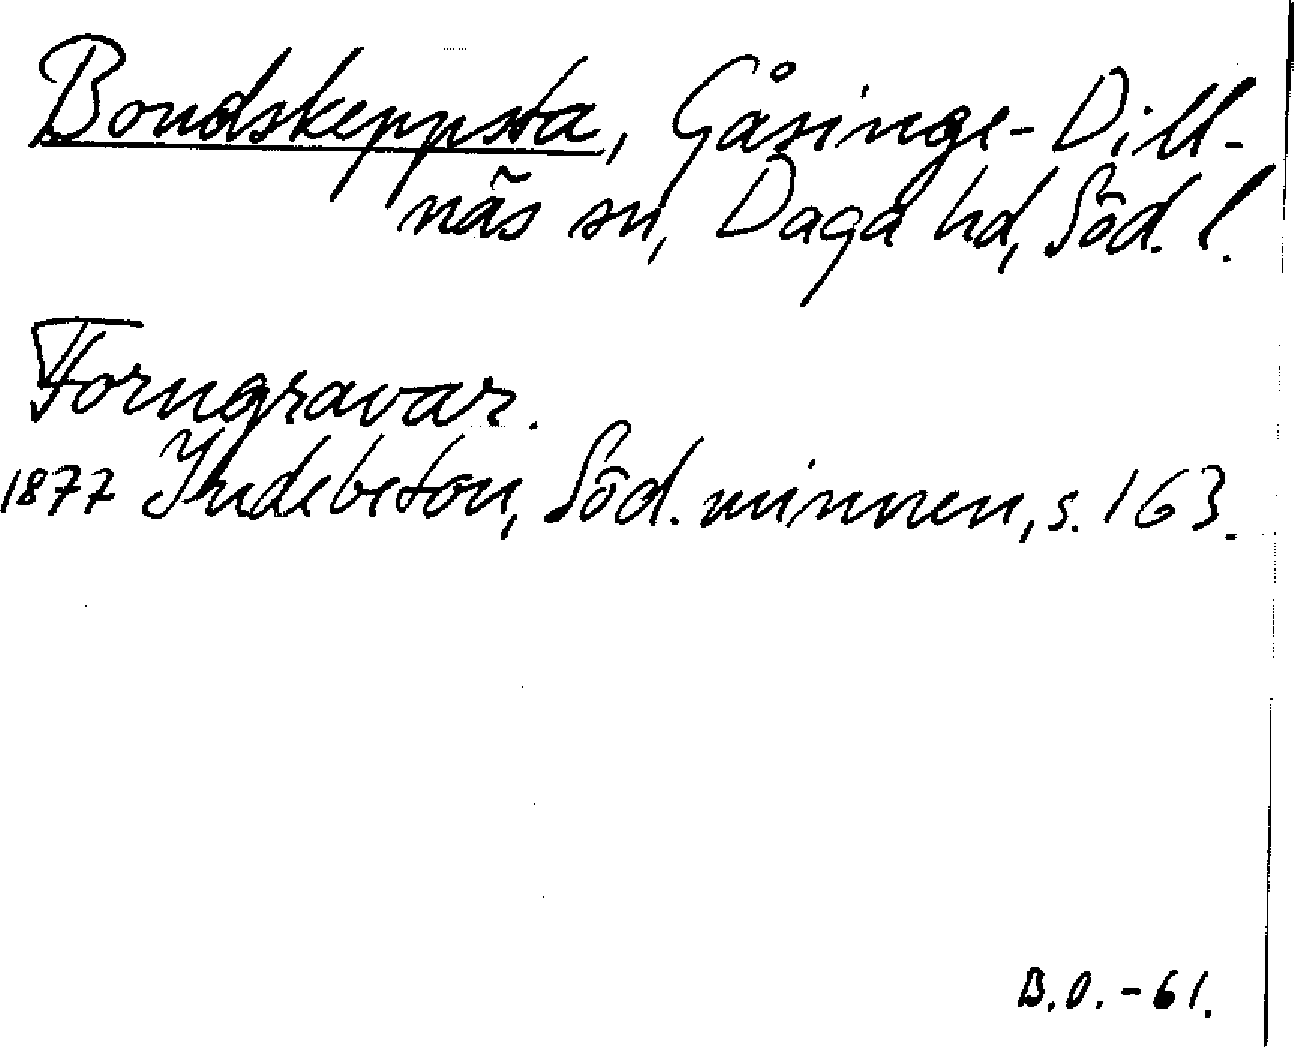 Bondskeppsta, Gåsinge-Dill-
näs sn, Daga hd, Söd. l.
Forngravar.
1877 Indebetou, Söd. minnen, s. 163.
B.O. - 61.